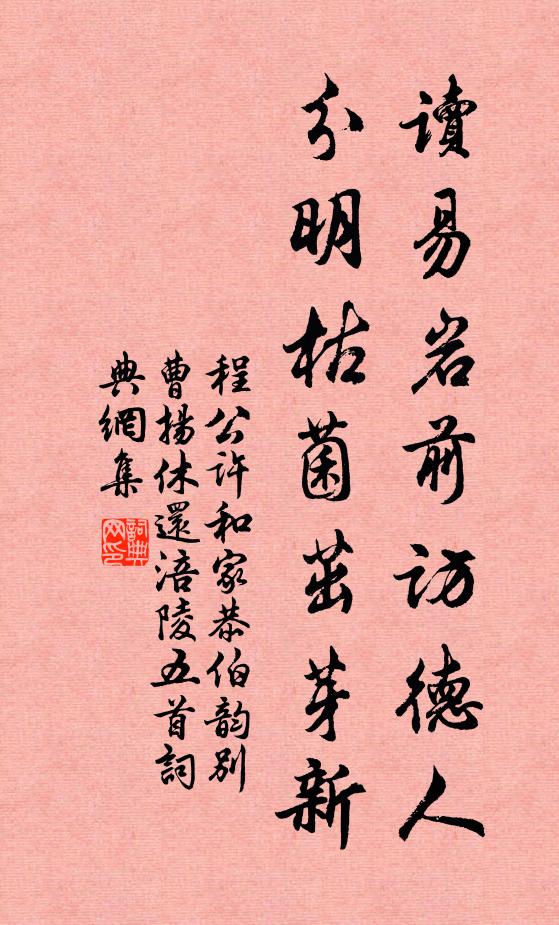 讀易岩前訪德人
分明枯菌茁芽新
程公許和家恭伯韵別
曹揚休還涪陵五首詞
典網集
詞典
网印